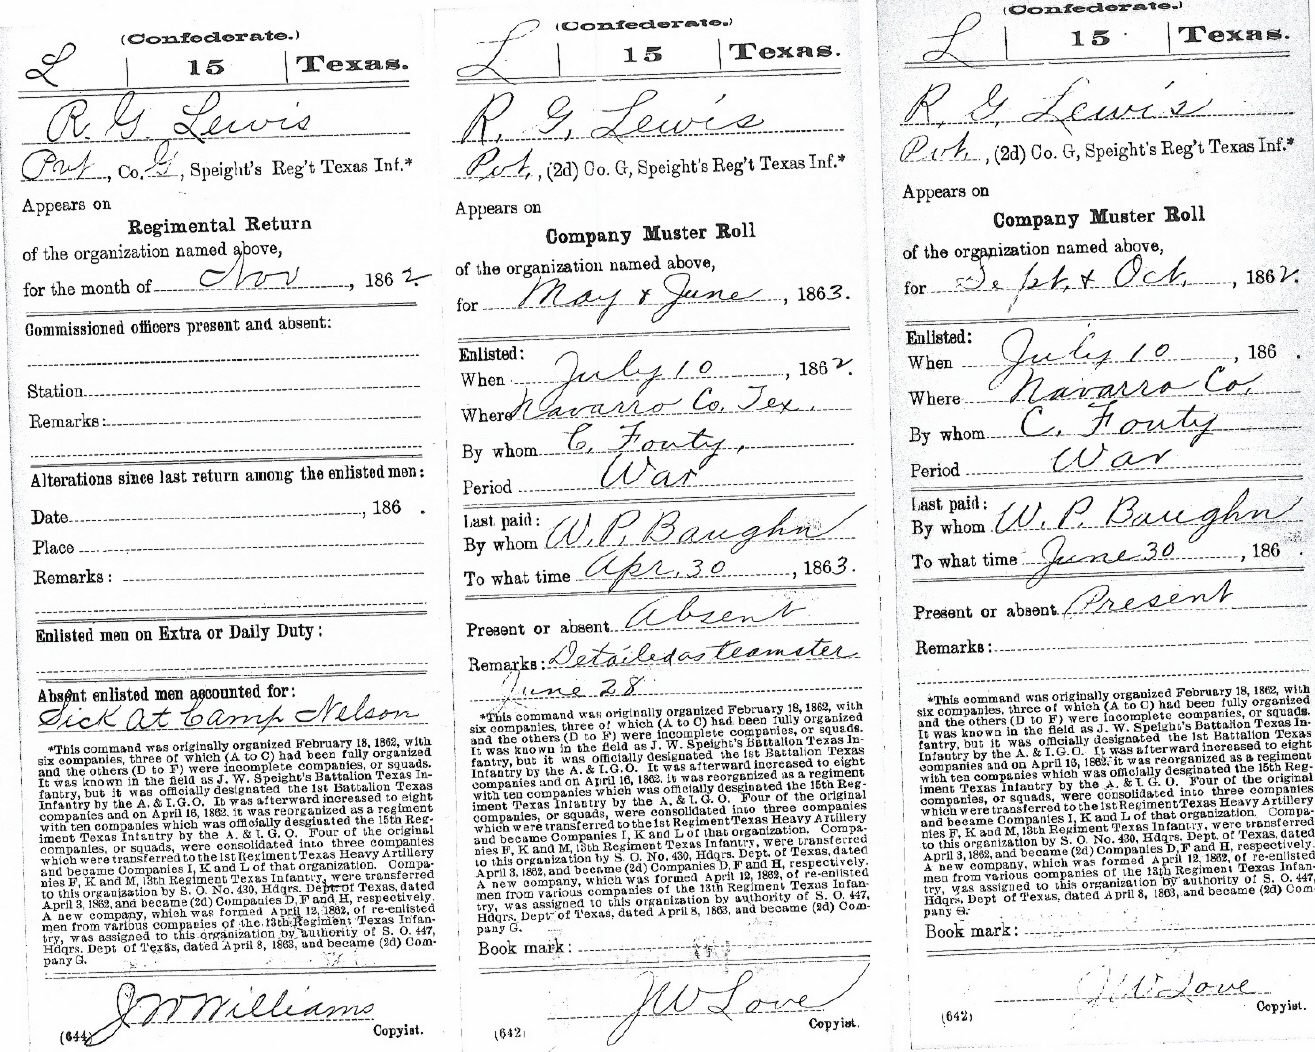 (Confederate.)
L | 15 | Texas.
R. G. Lewis
Pvt, Co. G, Speight's Reg't Texas Inf.*
Appears on
Regimental Return
of the organization named above,
for the month of Nov, 1862.
Commissioned officers present and absent:
Station
Remarks:
Alterations since last return among the enlisted men:
Date, 186 .
Place
Remarks:
Enlisted men on Extra or Daily Duty:
Absent enlisted men accounted for:
Sick at Camp Nelson
*This command was originally organized February 18, 1862, with
six companies, three of which (A to C) had been fully organized
and the others (D to F) were incomplete companies, or squads.
It was known in the field as J. W. Speight's Battalion Texas In-
fantry, but it was officially designated the 1st Battalion Texas
Infantry by the A. & I. G. O. It was afterward increased to eight
companies and on April 16, 1862, it was reorganized as a regiment
with ten companies which was officially designated the 15th Reg-
iment Texas Infantry by the A. & I. G. O. Four of the original
companies, or squads, were consolidated into three companies
which were transferred to the 1st Regiment Texas Heavy Artillery
and became Companies I, K and L of that organization. Compa-
nies F, K and M, 13th Regiment Texas Infantry, were transferred
to this organization by S. O. No. 430, Hdqrs. Dept of Texas, dated
April 3, 1862, and became (2d) Companies D, F and H, respectively.
A new company, which was formed April 12, 1862, of re-enlisted
men from various companies of the 13th Regiment Texas Infan-
try, was assigned to this organization by authority of S. O. 447,
Hdqrs. Dept of Texas, dated April 8, 1863, and became (2d) Com-
pany G.
J W Williams
(644) Copyist.
(Confederate.)
L | 15 | Texas.
R. G. Lewis
Pvt., (2d) Co. G, Speight's Reg't Texas Inf.*
Appears on
Company Muster Roll
of the organization named above,
for May & June, 1863.
Enlisted:
When July 10, 1862.
Where Navarro Co. Tex.
By whom C. Fouty,
Period War
Last paid:
By whom W. P. Baughn
To what time Apr. 30, 1863.
Present or absent Absent
Remarks: Detailed as teamster
June 28
*This command was originally organized February 18, 1862, with
six companies, three of which (A to C) had been fully organized
and the others (D to F) were incomplete companies, or squads.
It was known in the field as J. W. Speight's Battalion Texas In-
fantry, but it was officially designated the 1st Battalion Texas
Infantry by the A. & I. G. O. It was afterward increased to eight
companies and on April 16, 1862, it was reorganized as a regiment
with ten companies which was officially designated the 15th Reg-
iment Texas Infantry by the A. & I. G. O. Four of the original
companies, or squads, were consolidated into three companies
which were transferred to the 1st Regiment Texas Heavy Artillery
and became Companies I, K and L of that organization. Compa-
nies F, K and M, 13th Regiment Texas Infantry, were transferred
to this organization by S. O. No. 430, Hdqrs. Dept. of Texas, dated
April 3, 1862, and became (2d) Companies D, F and H, respectively.
A new company, which was formed April 12, 1862, of re-enlisted
men from various companies of the 13th Regiment Texas Infan-
try, was assigned to this organization by authority of S. O. 447,
Hdqrs. Dept of Texas, dated April 8, 1863, and became (2d) Com-
pany G.
Book mark:
J W Love
(642) Copyist.
(Confederate.)
L | 15 | Texas.
R. G. Lewis
Pvt., (2d) Co. G, Speight's Reg't Texas Inf.*
Appears on
Company Muster Roll
of the organization named above,
for Sept. & Oct., 1862.
Enlisted:
When July 10, 186 .
Where Navarro Co.
By whom C. Fouty
Period War
Last paid:
By whom W. P. Baughn
To what time June 30, 186 .
Present or absent Present
Remarks:
*This command was originally organized February 18, 1862, with
six companies, three of which (A to C) had been fully organized
and the others (D to F) were incomplete companies, or squads.
It was known in the field as J. W. Speight's Battalion Texas In-
fantry, but it was officially designated the 1st Battalion Texas
Infantry by the A. & I. G. O. It was afterward increased to eight
companies and on April 16, 1862, it was reorganized as a regiment
with ten companies which was officially designated the 15th Reg-
iment Texas Infantry by the A. & I. G. O. Four of the original
companies, or squads, were consolidated into three companies
which were transferred to the 1st Regiment Texas Heavy Artillery
and became Companies I, K and L of that organization. Compa-
nies F, K and M, 13th Regiment Texas Infantry, were transferred
to this organization by S. O. No. 430, Hdqrs. Dept. of Texas, dated
April 3, 1862, and became (2d) Companies D, F and H, respectively.
A new company, which was formed April 12, 1862, of re-enlisted
men from various companies of the 13th Regiment Texas Infan-
try, was assigned to this organization by authority of S. O. 447,
Hdqrs. Dept of Texas, dated April 8, 1863, and became (2d) Com-
pany G.
Book mark:
J W Love
(642) Copyist.